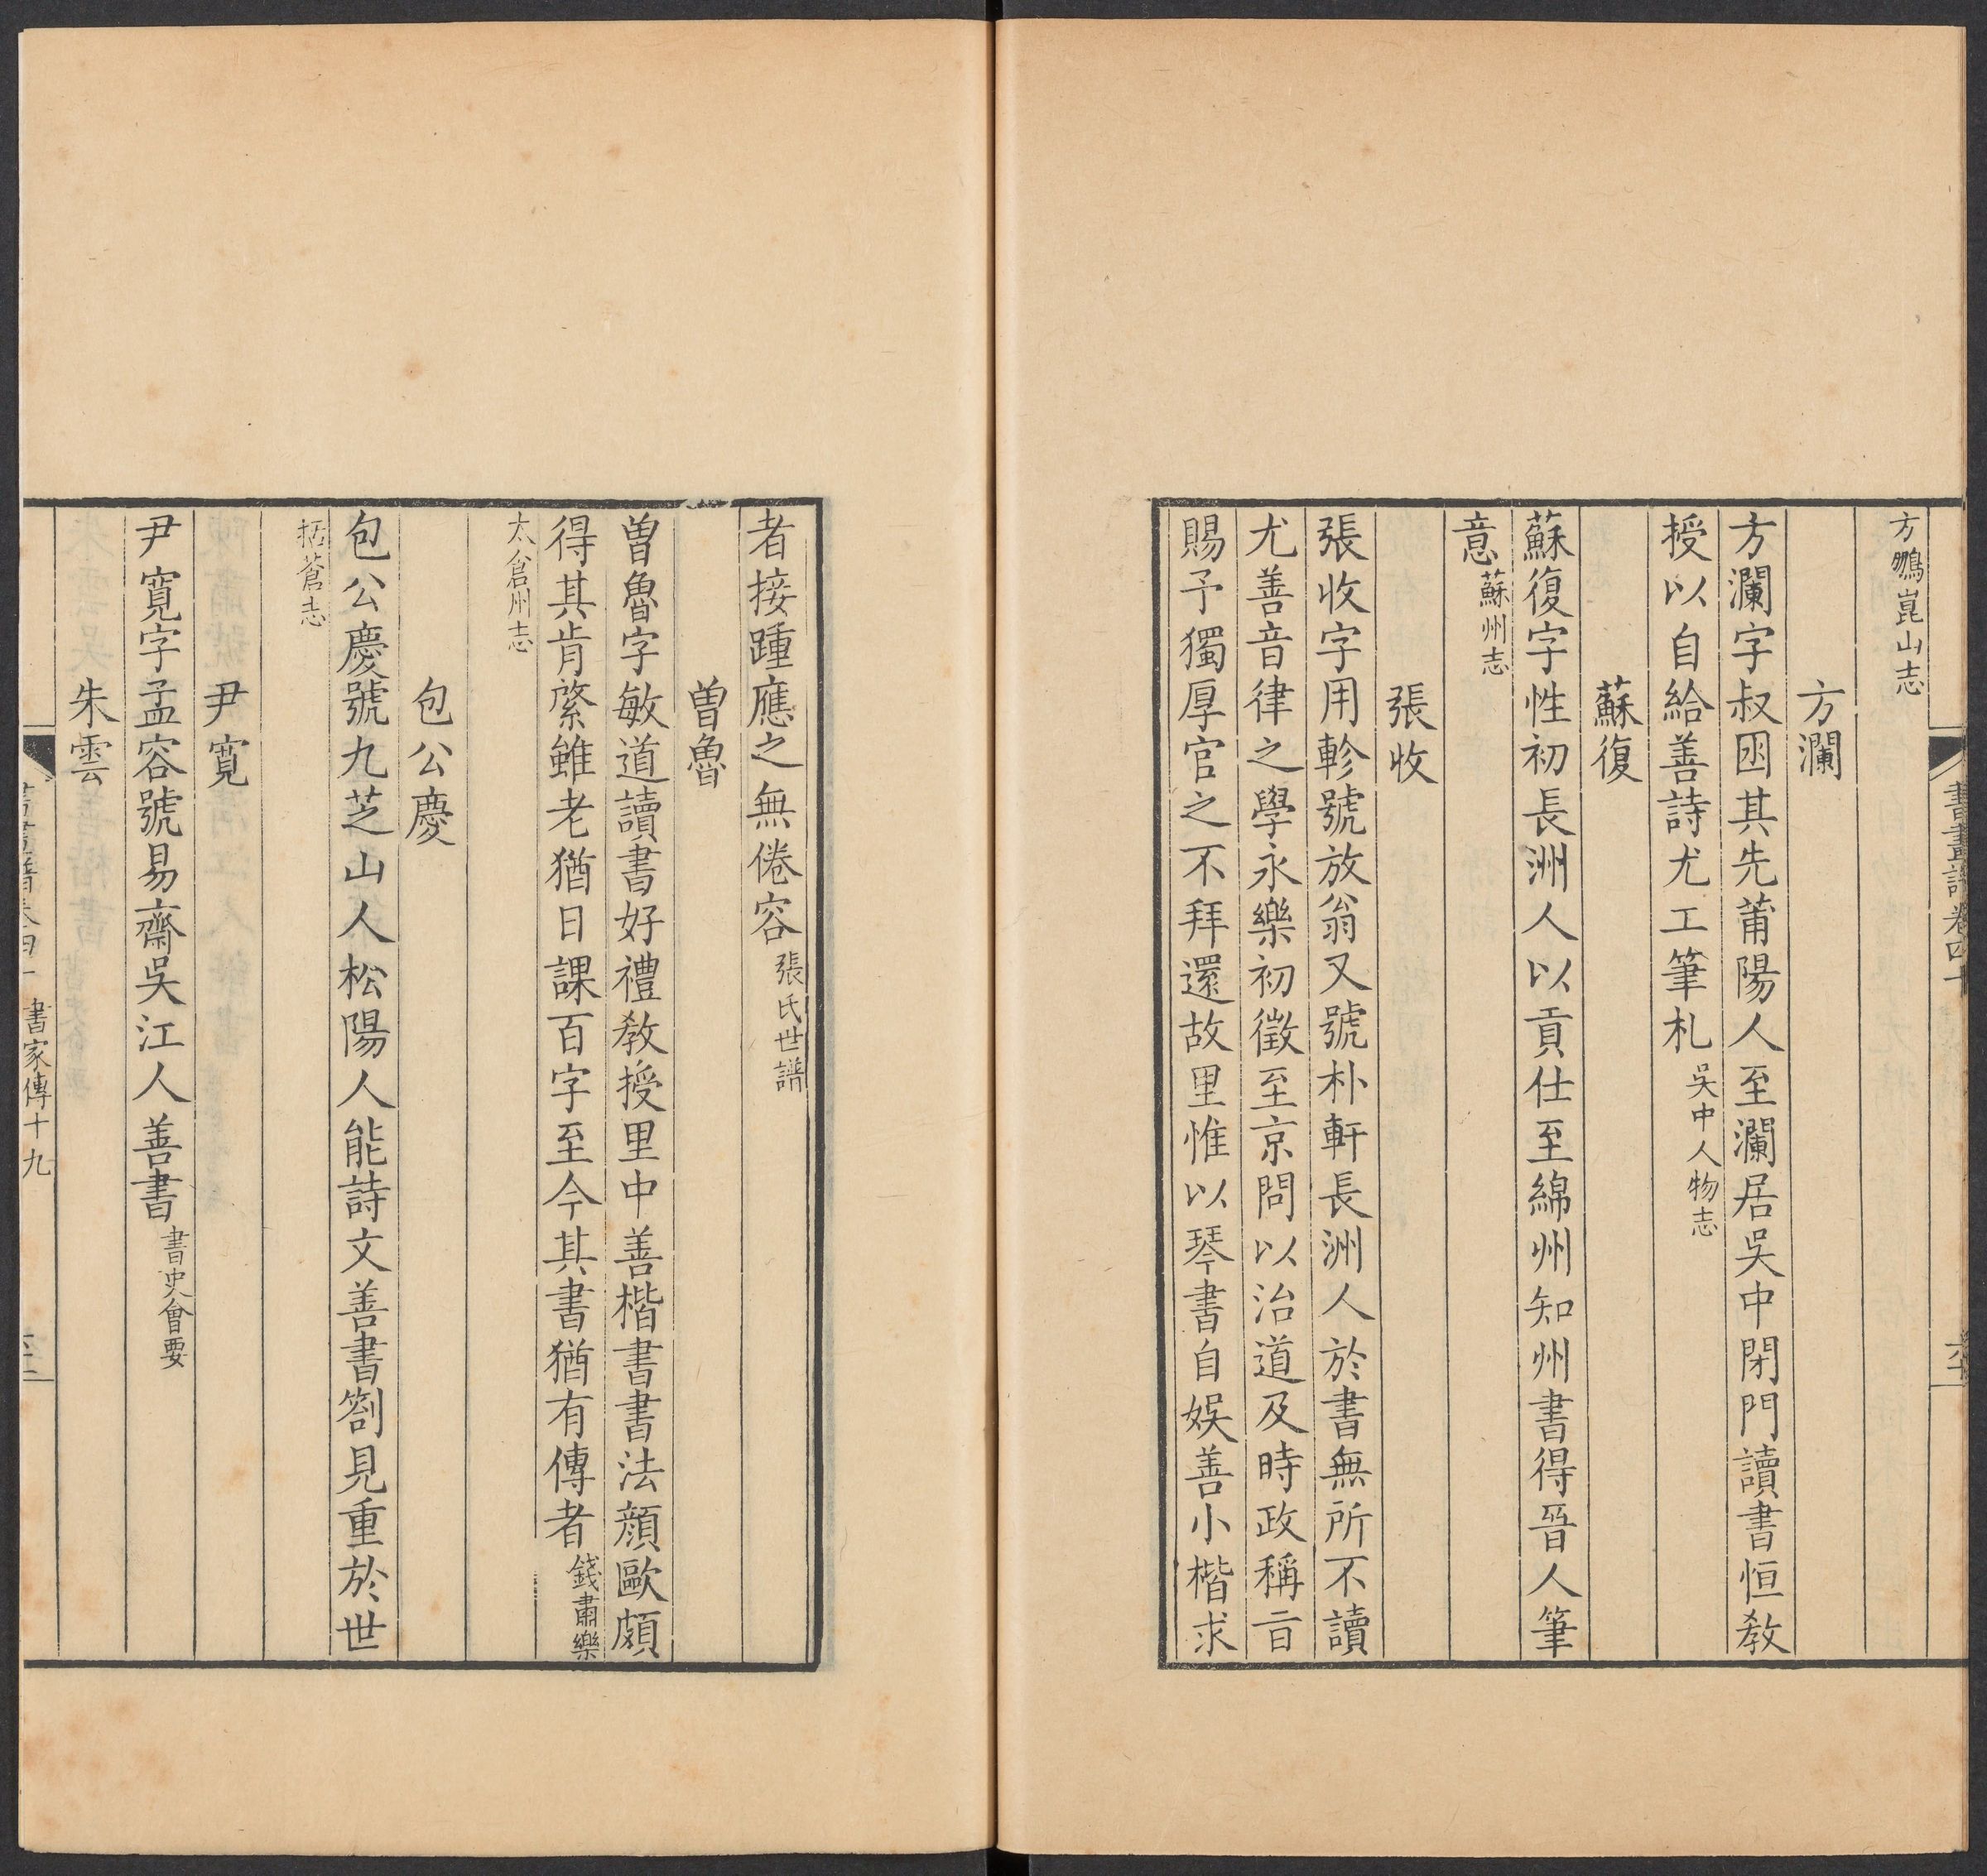 書畫譜卷四十
方鵬崑山志
方瀾
方瀾字叔囦其先莆陽人至瀾居吳中閉門讀書恒教
授以自給善詩尤工筆札吳中人物志
蘇復
蘇復字性初長洲人以貢仕至綿州知州書得晉人筆
意蘇州志
張收
張收字用軫號放翁又號朴軒長洲人於書無所不讀
尤善音律之學永樂初徵至京問以治道及時政稱旨
賜予獨厚官之不拜還故里惟以琴書自娛善小楷求
者接踵應之無倦容張氏世譜
曾魯
曾魯字敏道讀書好禮教授里中善楷書書法顏歐頗
得其肯綮雖老猶日課百字至今其書猶有傳者錢肅樂
太倉州志
包公慶
包公慶號九芝山人松陽人能詩文善書劄見重於世
括蒼志
尹寬
尹寬字孟容號易齋吳江人善書書史會要
朱雲
書家傳十九